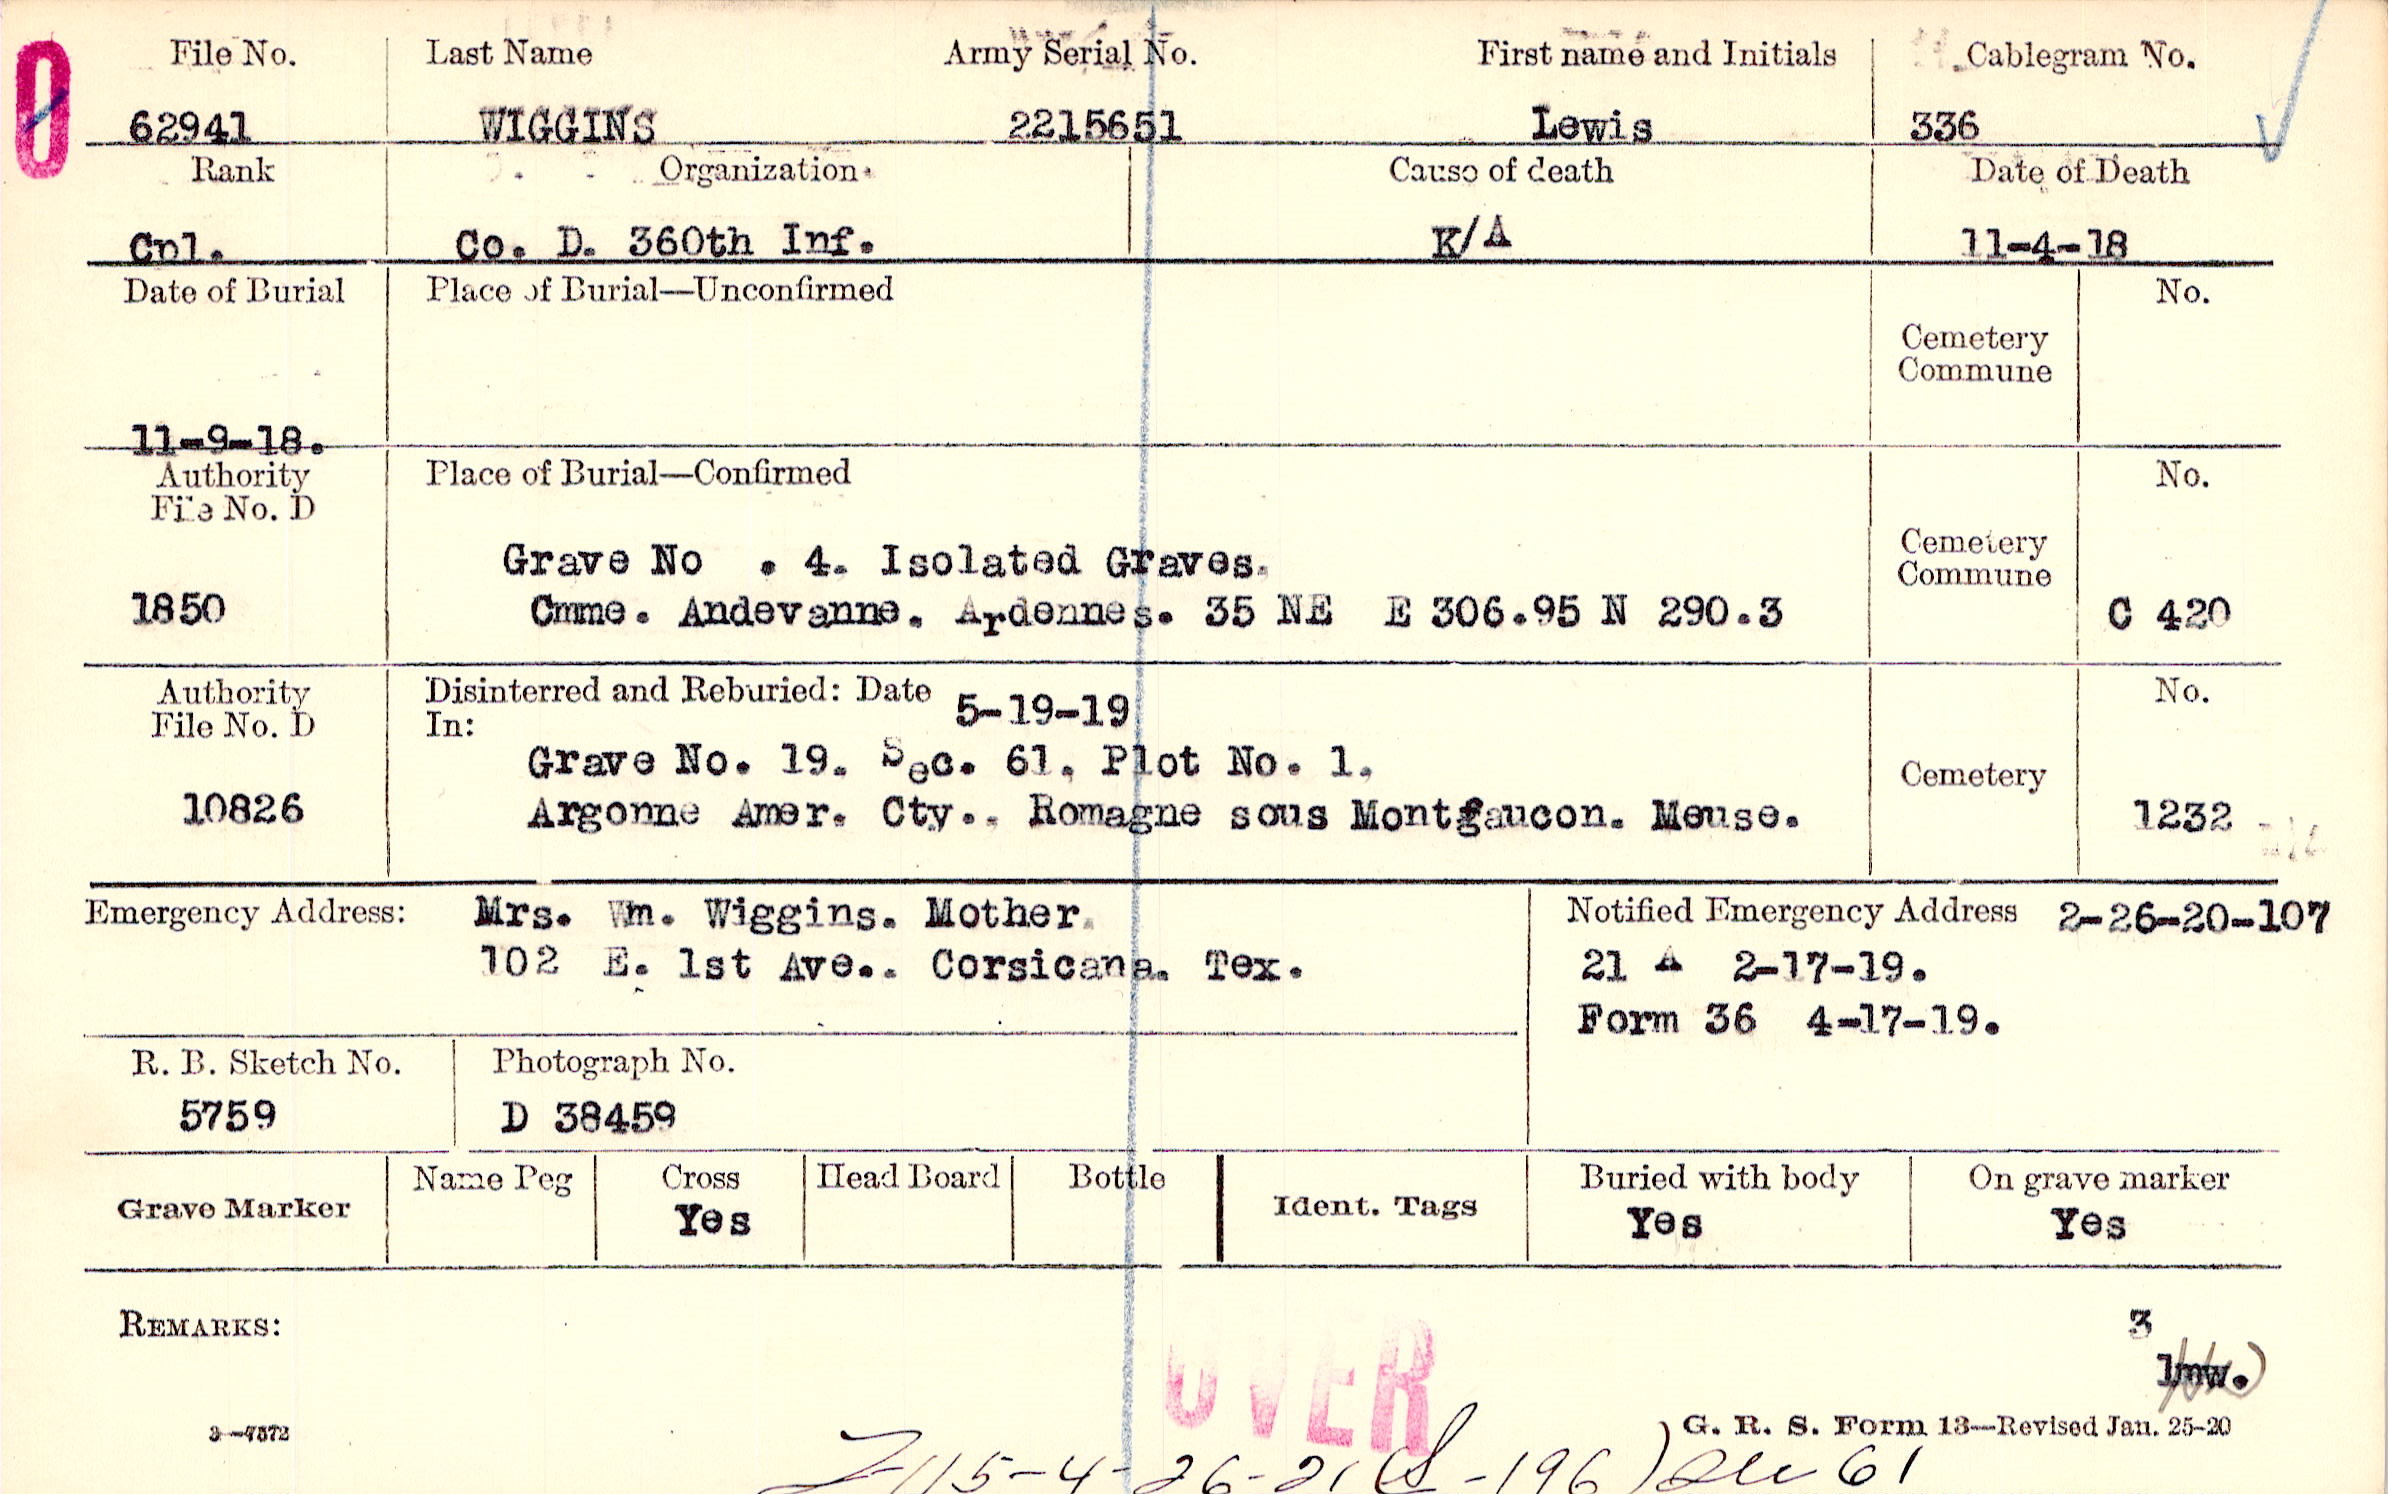 0
File No. Last Name Army Serial No. First name and Initials Cablegram No.
62941 WIGGINS 2215651 Lewis 336
Rank Organization Cause of death Date of Death
Cpl. Co. D. 360th Inf. K/A 11-4-18
Date of Burial Place of Burial—Unconfirmed No.
Cemetery
Commune
11-9-18.
Authority Place of Burial—Confirmed No.
File No. D
Grave No . 4. Isolated Graves. Cemetery
Commune
1850 Cmme. Andevanne. Ardennes. 35 NE E 306.95 N 290.3 C 420
Authority Disinterred and Reburied: Date 5-19-19 No.
File No. D In:
Grave No. 19. Sec. 61. Plot No. 1. Cemetery
10826 Argonne Amer. Cty.. Romagne sous Montfaucon. Meuse. 1232
Emergency Address: Mrs. Wm. Wiggins. Mother. Notified Emergency Address 2-26-20-107
102 E. 1st Ave.. Corsicana. Tex. 21 A 2-17-19.
Form 36 4-17-19.
R. B. Sketch No. Photograph No.
5759 D 38459
Grave Marker Name Peg Cross Head Board Bottle Ident. Tags Buried with body On grave marker
Yes Yes Yes
REMARKS: 3
lmw.
OVER
3—7572 G. R. S. Form 13—Revised Jan. 25-20
115-4-26-21 (S-196) 61